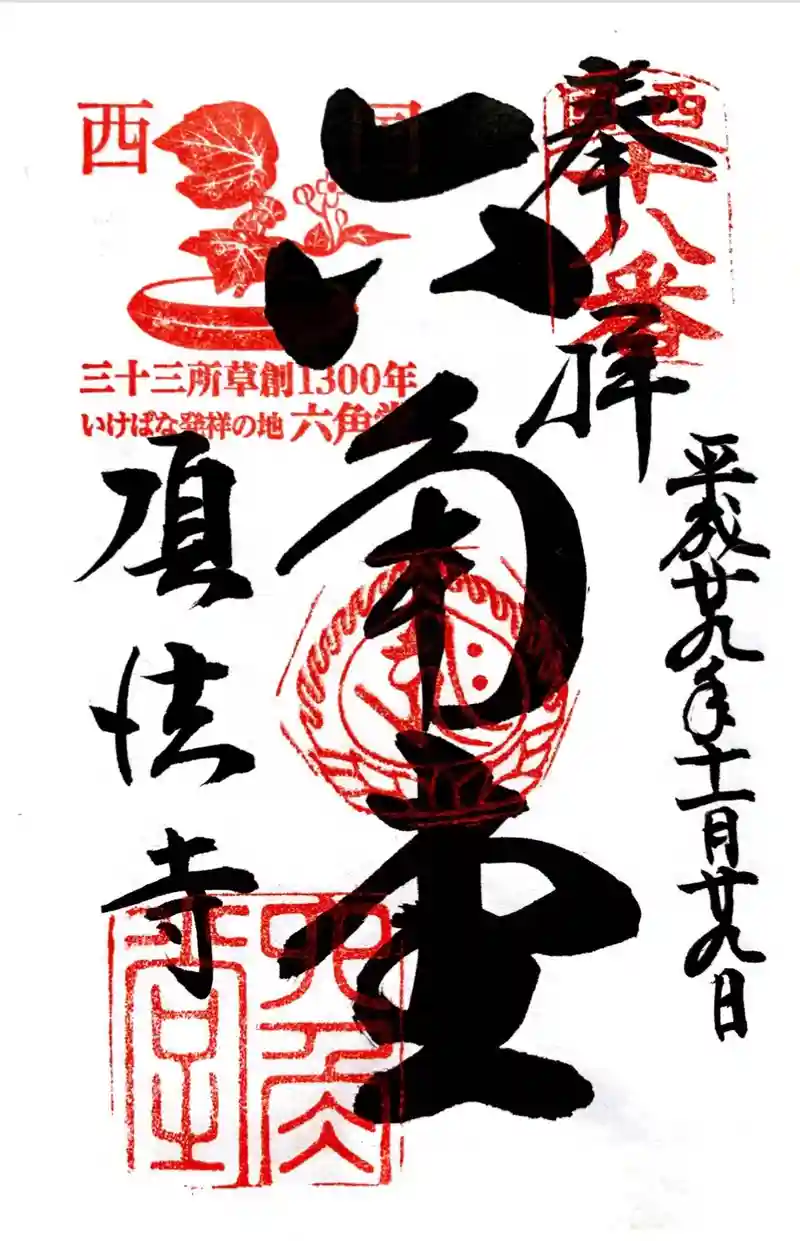 奉拝
西国十八番
平成廿九年十一月廿九日
六角堂
西国
三十三所草創1300年
いけばな発祥の地 六角堂
頂法寺
六角堂